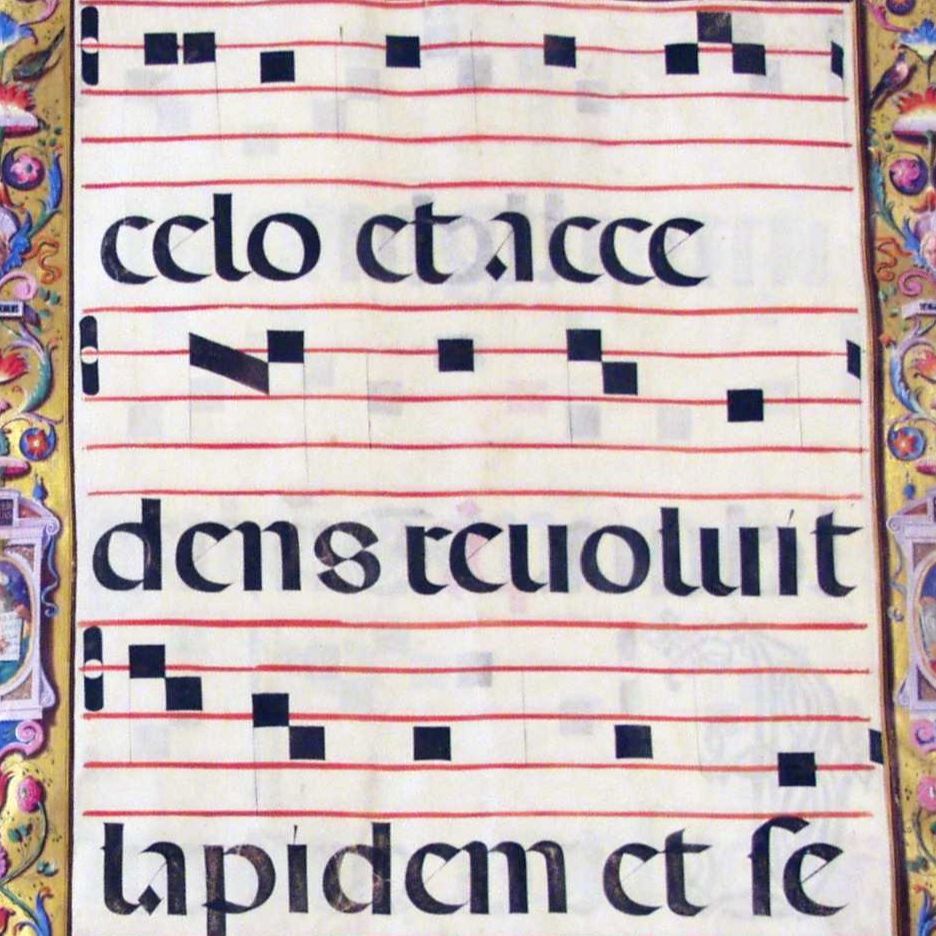 celo et acce
dens reuoluit
lapidem et se